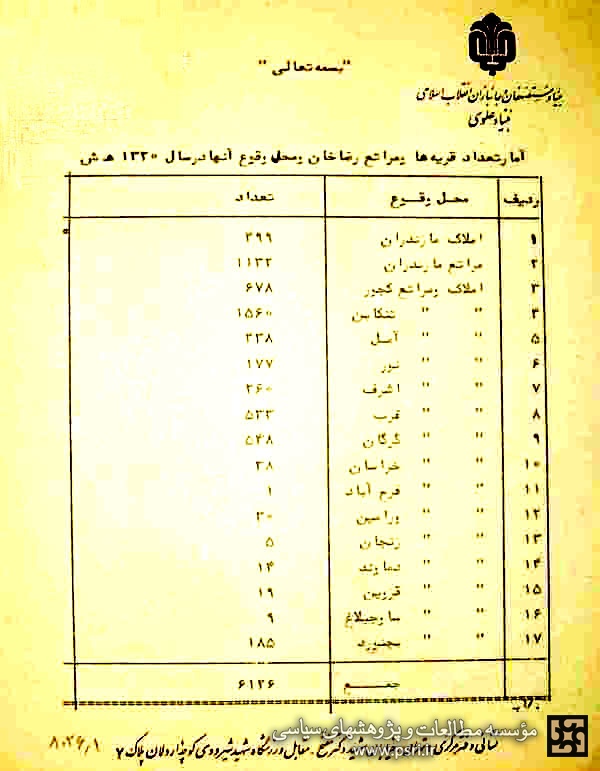 "بسمه تعالی"
بنیاد مستضعفان و جانبازان انقلاب اسلامی
بنیاد علوی
آمار تعداد قریه ها ومراتع رضاخان ومحل وقوع آنها در سال ۱۳۲۰ هـ ش
ردیف محل وقوع تعداد
۱ املاک مازندران ۳۹۹
۲ مراتع مازندران ۱۱۳۲
۳ املاک ومراتع کجور ۶۷۸
۴ " " تنکابن ۱۵۶۰
۵ " " آمل ۳۳۸
۶ " " نور ۱۷۷
۷ " " اشرف ۲۶۰
۸ " " غرب ۵۳۳
۹ " " گرگان ۵۴۸
۱۰ " " خراسان ۳۸
۱۱ " " فرم آباد ۱
۱۲ " " ورامین ۳۰
۱۳ " " زنجان ۵
۱۴ " " دماوند ۱۴
۱۵ " " قزوین ۱۹
۱۶ " " ساوجبلاغ ۹
۱۷ " " بجنورد ۱۸۵
جمع ۶۱۲۶
مؤسسه مطالعات و پژوهشهای سیاسی
www.psri.ir
مقابل ورزشگاه شهید شیرودی کوچه اردلان پلاک ۷